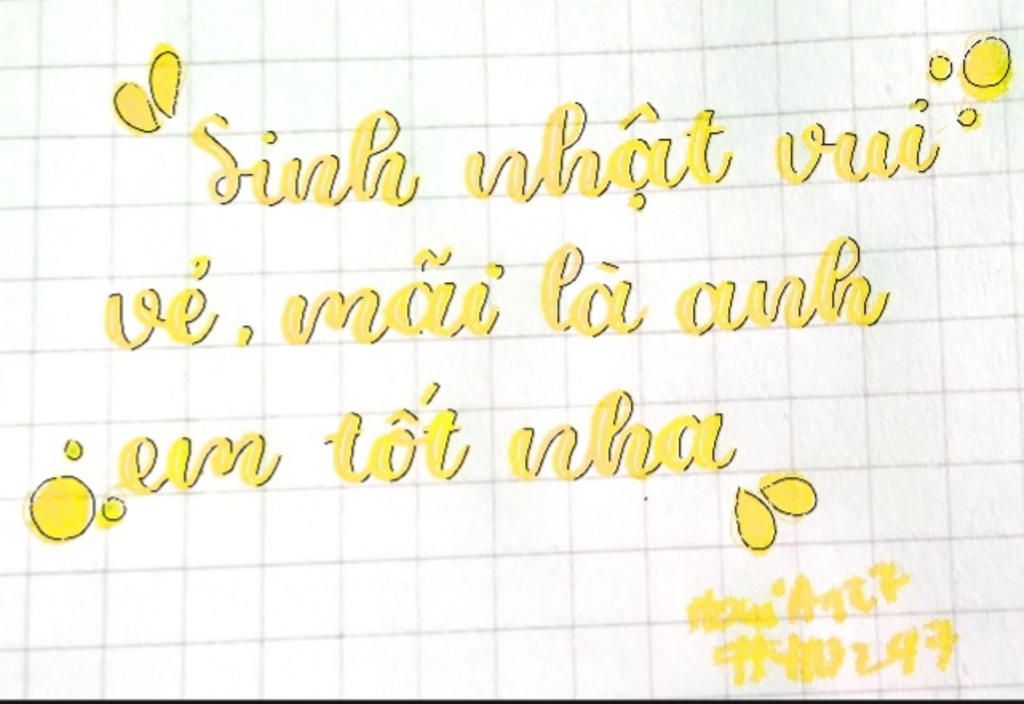 Sinh nhật vui
vẻ, mãi là anh
em tốt nha